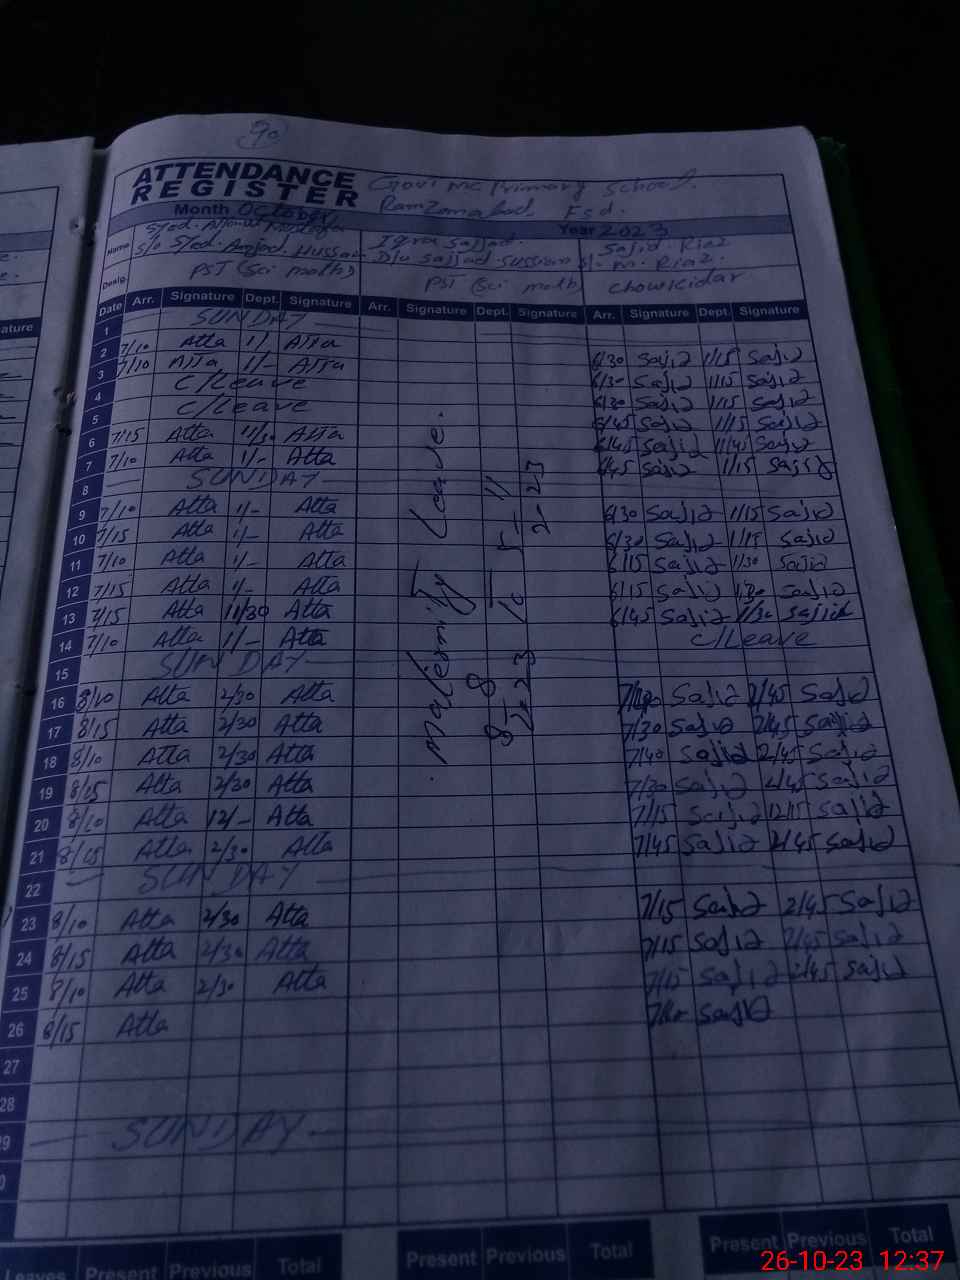 90
ATTENDANCE
REGISTER
Govt MC Primary School.
Ramzanabad. Fsd.
Month October Year 2023
Name Syed. Iqra Sajjad. Sajid. Riaz
S/o Syed. Amjad. Hussain D/o Sajjad. Hussain S/o M. Riaz.
Desig PST (Sci math) PST (Sci math) Chowkidar
Date Arr. Signature Dept. Signature Arr. Signature Dept. Signature Arr. Signature Dept. Signature
1 SUNDAY
2 7/10 Atta 1/- Atta 6/30 Sajid 1/15 Sajid
3 7/10 Atta 1/- Atta 6/30 Sajid 1/15 Sajid
4 C/Leave 6/30 Sajid 1/15 Sajid
5 C/Leave 6/45 Sajid 1/15 Sajid
6 7/15 Atta 11/30 Atta 6/45 Sajid 11/45 Sajid
7 7/10 Atta 1/- Atta 6/45 Sajid 1/15 Sajid
8 SUNDAY
9 7/10 Atta 1/- Atta 6/30 Sajid 1/15 Sajid
10 7/15 Atta 1/- Atta 6/30 Sajid 1/15 Sajid
11 7/10 Atta 1/- Atta 6/15 Sajid 1/30 Sajid
12 7/15 Atta 1/- Atta 6/15 Sajid 1/30 Sajid
13 7/15 Atta 11/30 Atta 6/45 Sajid 11/30 Sajid
14 7/10 Atta 1/- Atta C/Leave
15 SUNDAY
16 8/10 Atta 2/30 Atta Sajid 2/45 Sajid
17 8/15 Atta 2/30 Atta 7/30 Sajid 2/45 Sajid
18 8/10 Atta 2/30 Atta 7/40 Sajid 2/45 Sajid
19 8/15 Atta 2/30 Atta 7/30 Sajid 2/45 Sajid
20 8/10 Atta 12/- Atta 7/15 Sajid 12/15 Sajid
21 8/15 Atta 2/30 Atta 7/45 Sajid 2/45 Sajid
22 SUNDAY
23 8/10 Atta 2/30 Atta 7/15 Sajid 2/45 Sajid
24 8/15 Atta 2/30 Atta 7/15 Sajid 2/45 Sajid
25 8/10 Atta 2/30 Atta 7/15 Sajid 2/45 Sajid
26 8/15 Atta Sajid
27
28
29 SUNDAY
Maternity Leave.
8-8-2023 To 5-11-2023
Leaves Present Previous Total Present Previous Total Present Previous Total
26-10-23 12:37